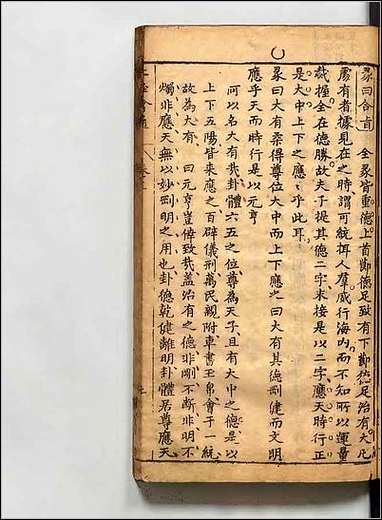 彖曰合旨 全彖皆重德上首節德足致有下節德足治有大凡
處有者據見在之時謂可統楫人羣威行海內而不知所以運量
裁握全在德勝故夫子提其德二字末接是以二字應天時行正
是大中上下之應乎此耳
彖曰大有柔得尊位大中而上下應之曰大有其德剛健而文明
應乎天而時行是以元亨
何以名大有哉卦體六五之位尊為天子且有大中之德是以
上下五陽皆來應之百辟儀刑萬民親附車書玉帛會于一統
故為大有 曰元亨豈倖致哉蓋治有之德非剛不斷非明不
燭非應天無以妙剛明之用也卦德乾健離明卦體居尊應天